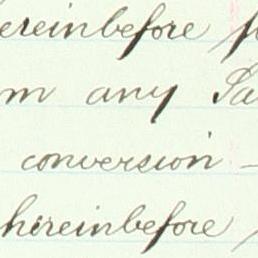 hereinbefore
any
conversion -
hereinbefore